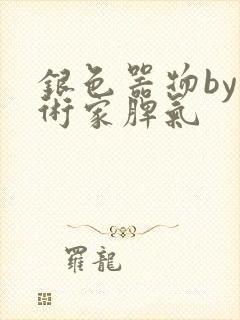 銀色器物by
術家脾氣
羅龍